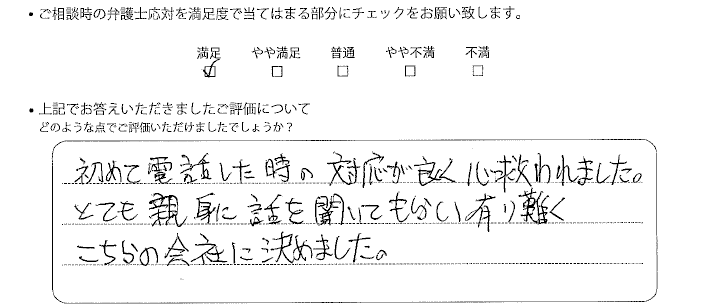 ・ご相談時の弁護士応対を満足度で当てはまる部分にチェックをお願い致します。
満足 やや満足 普通 やや不満 不満
☑ □ □ □ □
・上記でお答えいただきましたご評価について
どのような点でご評価いただけましたでしょうか?
初めて電話した時の対応が良く心救われました。
とても親身に話を聞いてもらい有り難く
こちらの会社に決めました。